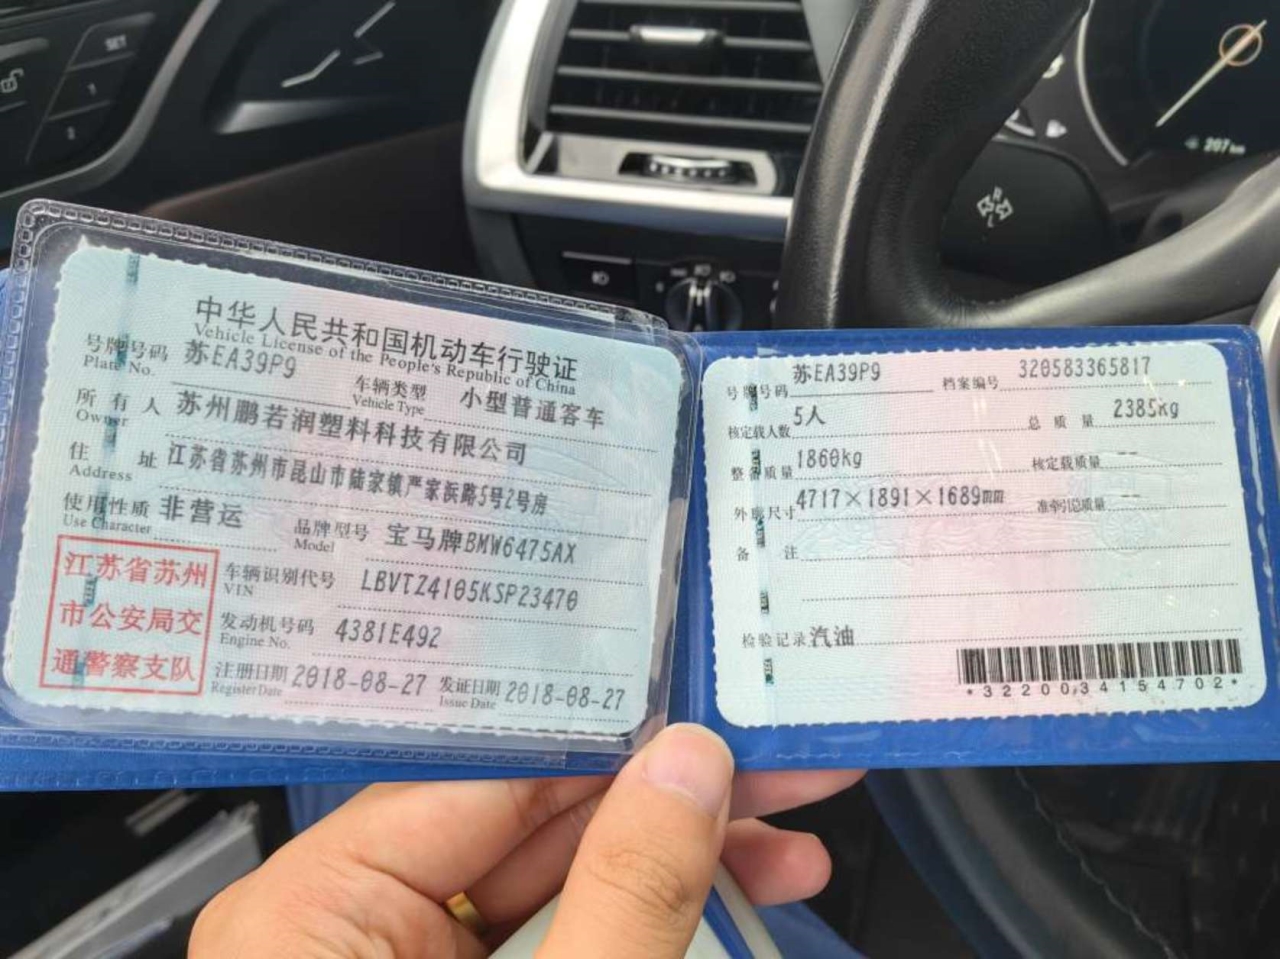 SET
1
207 km
R
L
中华人民共和国机动车行驶证
Vehicle License of the People's Republic of China
号牌号码 苏EA39P9 车辆类型 小型普通客车
Plate No. Vehicle Type
所有人 苏州鹏若润塑料科技有限公司
Owner
住址 江苏省苏州市昆山市陆家镇严家浜路5号2号房
Address
使用性质 非营运 品牌型号 宝马牌BMW6475AX
Use Character Model
江苏省苏州
市公安局交
通警察支队
车辆识别代号 LBVTZ4105KSP23470
VIN
发动机号码 4381E492
Engine No.
注册日期 2018-08-27 发证日期 2018-08-27
Register Date Issue Date
号牌号码 苏EA39P9 档案编号 320583365817
核定载人数 5人 总质量 2385kg
整备质量 1860kg 核定载质量 --
外廓尺寸 4717×1891×1689mm 准牵引总质量 --
备注
检验记录 汽油
*3220034154702*